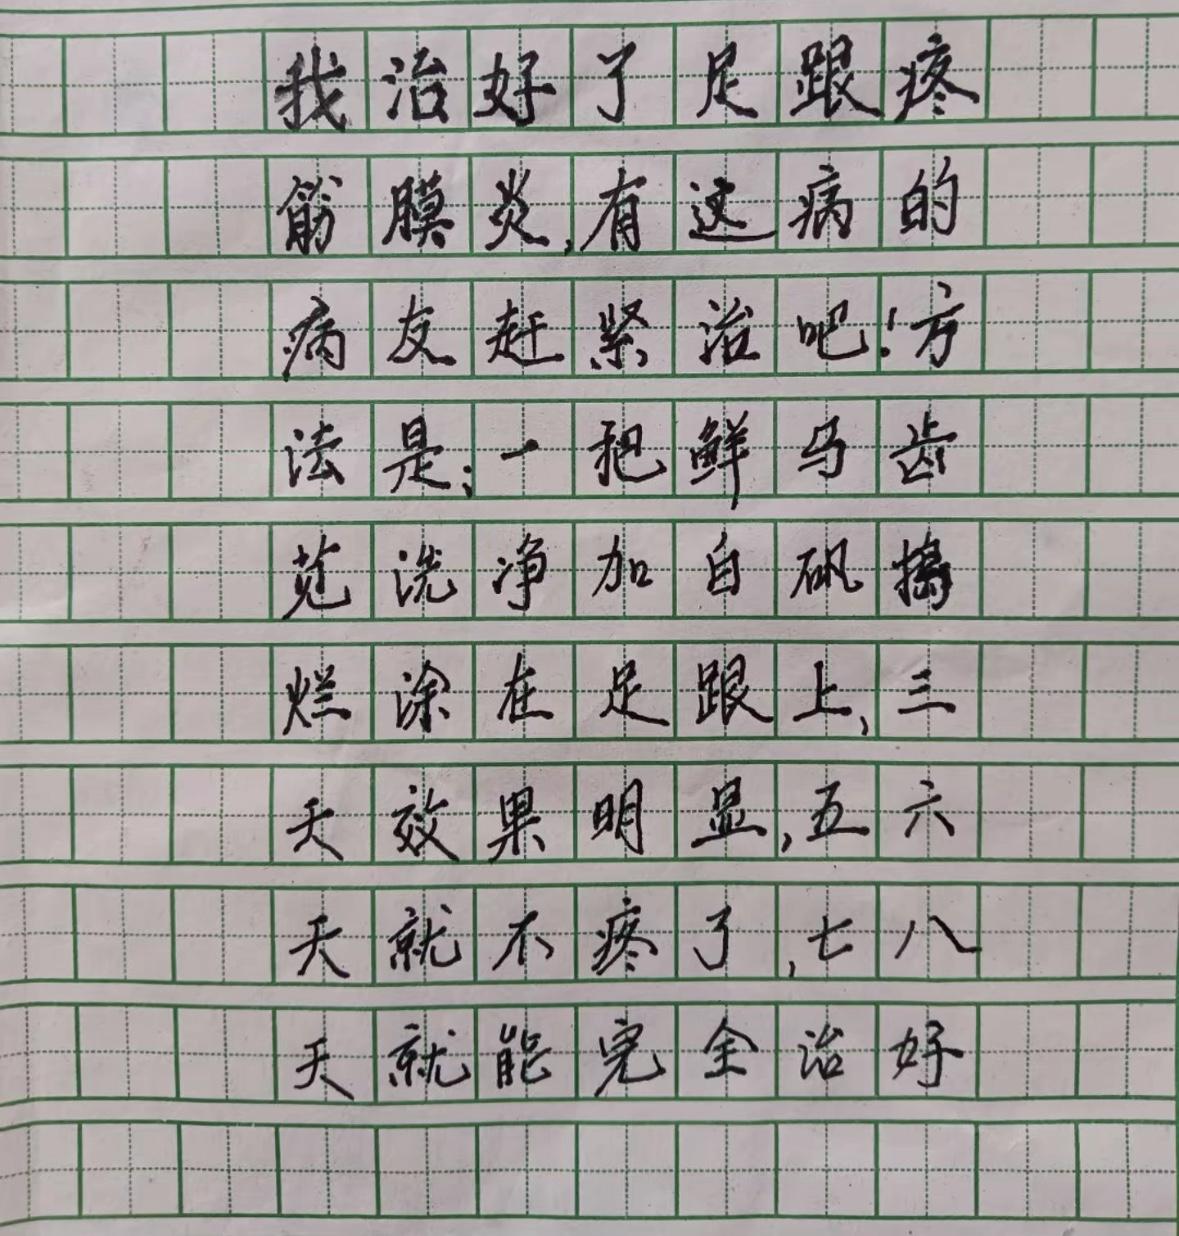 我治好了足跟疼
筋膜炎,有这病的
病友赶紧治吧!方
法是:一把鲜马齿
苋洗净加白矾捣
烂涂在足跟上,三
天效果明显,五六
天就不疼了,七八
天就能完全治好